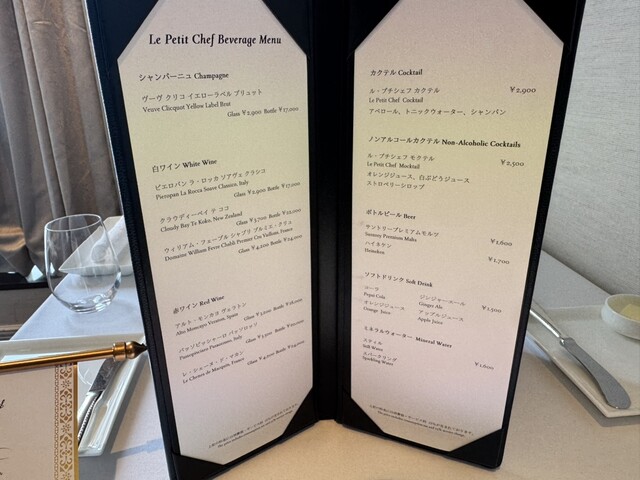 Le Petit Chef Beverage Menu
シャンパーニュ Champagne
ヴーヴ クリコ イエローラベル ブリュット
Veuve Clicquot Yellow Label Brut
Glass ¥2,900 Bottle ¥17,000
白ワイン White Wine
ピエロパン ラ・ロッカ ソアヴェ クラシコ
Pieropan La Rocca Soave Classico, Italy
Glass ¥2,900 Bottle ¥17,000
クラウディーベイ テ ココ
Cloudy Bay Te Koko, New Zealand
Glass ¥3,700 Bottle
ウィリアム・フェーブル シャブリ プルミエ・クリュ
Domaine William Fevre Chablis Premier Cru Vaillons, France
Glass ¥4,200 Bottle
赤ワイン Red Wine
アルト・モンカヨ ヴェラトン
Alto Moncayo Veraton, Spain
Glass Bottle
パッソピッシャーロ パッソロッソ
Passopisciaro Passorosso, Italy
Glass Bottle
レ・シェーヌ・ド・マカン
Le Chenes de Macquin, France
Glass Bottle
カクテル Cocktail
ル・プチシェフ カクテル ¥2,900
Le Petit Chef Cocktail
アペロール、トニックウォーター、シャンパン
ノンアルコールカクテル Non-Alcoholic Cocktails
ル・プチシェフ モクテル ¥2,500
Le Petit Chef Mocktail
オレンジジュース、白ぶどうジュース
ストロベリーシロップ
ボトルビール Beer
サントリープレミアムモルツ ¥1,600
Suntory Premium Malts
ハイネケン ¥1,700
Heineken
ソフトドリンク Soft Drink
コーラ ジンジャーエール ¥1,500
Pepsi Cola Ginger Ale
オレンジジュース アップルジュース
Orange Juice Apple Juice
ミネラルウォーター Mineral Water
スティル ¥1,800
Still Water
スパークリング
Sparkling Water